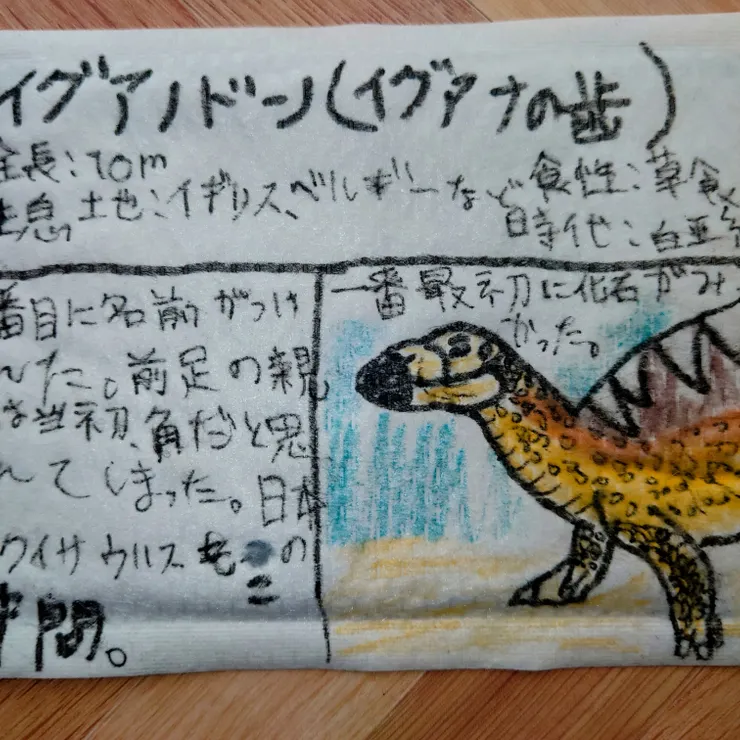 イグアノドン(イヴアナの歯)
全長:10m
食性:草食
生息土地:イギリス、ベルギーなど
時代:白亜
番目に名前がつけ
んた。前足の親
は当初、角だと思
んてしまった。日本
ウイサウルスも この
仲間。
一番最初に化石がみつ
かった。